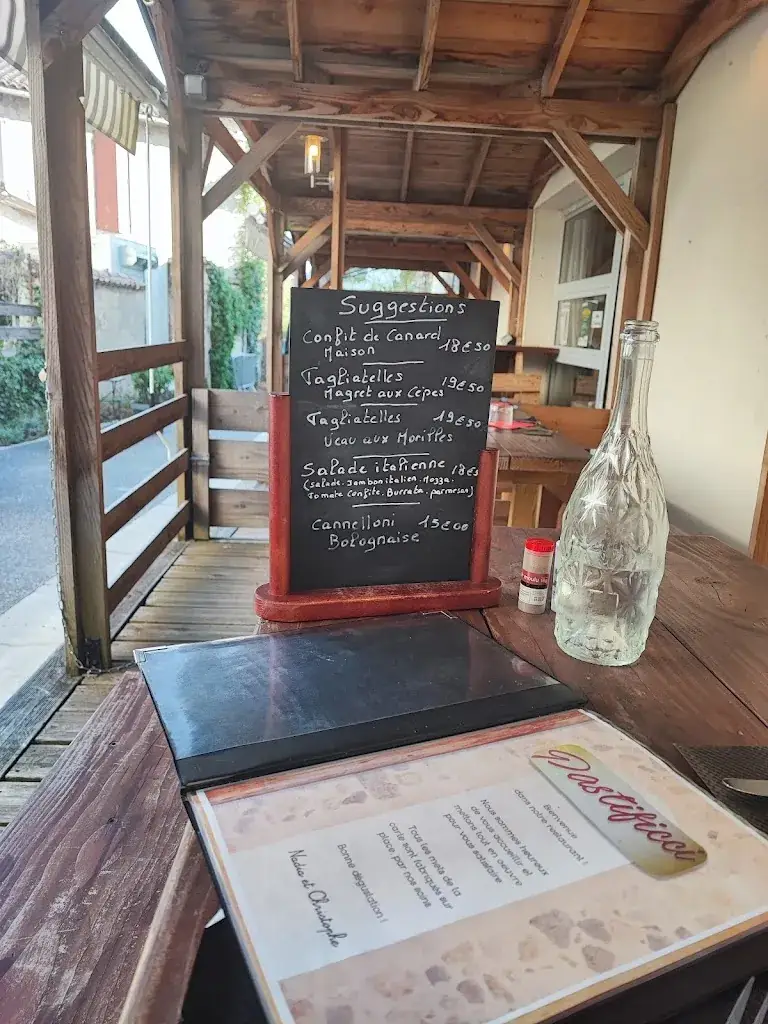 Suggestions
Confit de Canard
Maison 18€50
Tagliatelles 19€50
Magret aux Cèpes
Tagliatelles 19€50
Veau aux Morilles
Salade italienne 18€5
(salade. Jambon italien. Mozza.
Tomate confite. Burrata. parmesan)
Cannelloni 15€00
Bolognaise
Pastificci
Bienvenue
dans notre restaurant !
Nous sommes heureux
de vous accueillir et
mettons tout en oeuvre
pour vous satisfaire
Tous les mets de la
carte sont fabriqués sur
place par nos soins
Bonne dégustation !
Nadia et Christophe